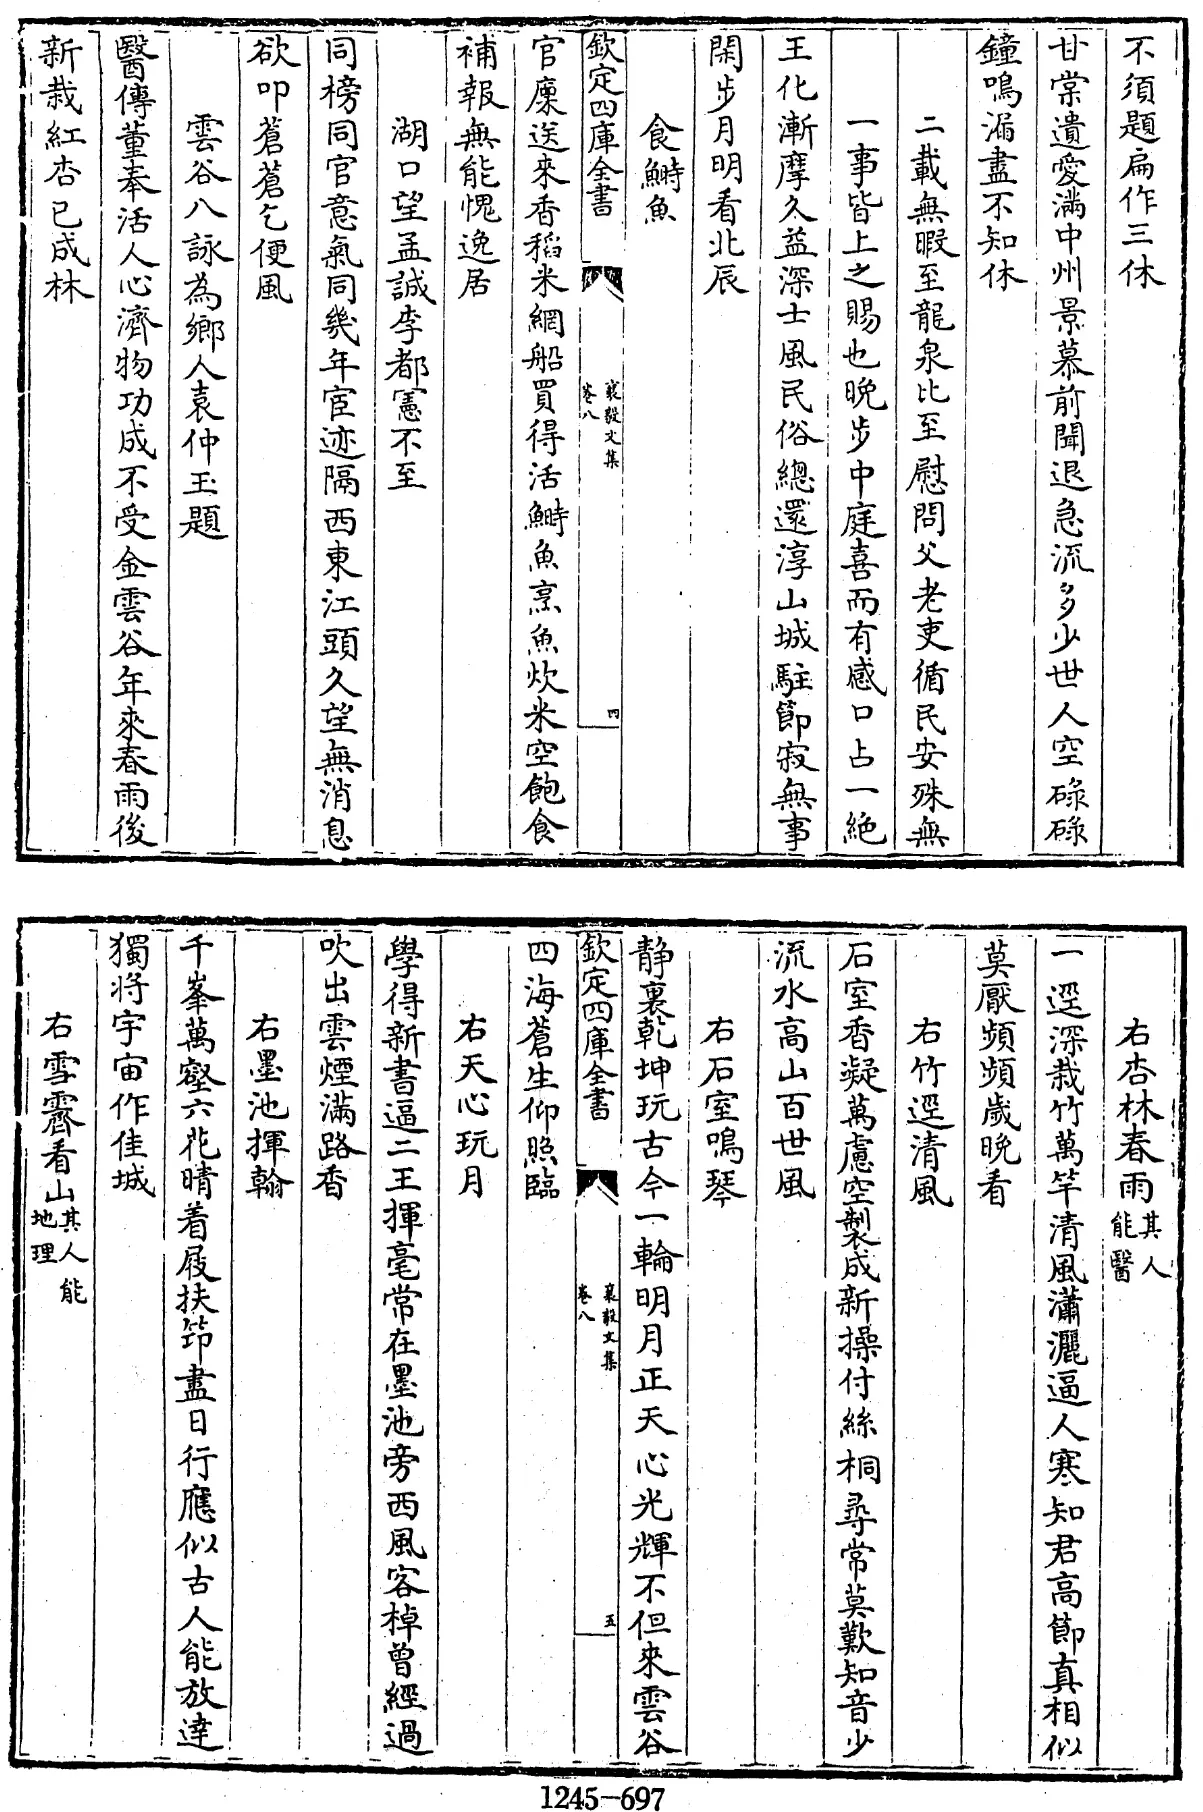 不須題扁作三休
甘棠遺愛滿中州景慕前聞退急流多少世人空碌碌
鐘鳴漏盡不知休
二載無暇至龍泉比至慰問父老吏循民安殊無
一事皆上之賜也晚步中庭喜而有感口占一絶
王化漸摩久益深士風民俗總還淳山城駐節寂無事
閑步月明看北辰
食鰣魚
欽定四庫全書
襄毅文集
卷八
四
官廩送來香稻米網船買得活鰣魚烹魚炊米空飽食
補報無能愧逸居
湖口望孟誠李都憲不至
同榜同官意氣同幾年宦迹隔西東江頭久望無消息
欲叩蒼蒼乞便風
雲谷八詠為鄉人袁仲玉題
醫傳董奉活人心濟物功成不受金雲谷年來春雨後
新栽紅杏已成林
右杏林春雨其人能醫
一逕深栽竹萬竿清風瀟灑逼人寒知君高節真相似
莫厭頻頻歲晚看
右竹逕清風
石室香凝萬慮空製成新操付絲桐尋常莫歎知音少
流水高山百世風
右石室鳴琴
静裏乾坤玩古今一輪明月正天心光輝不但來雲谷
欽定四庫全書
襄毅文集
卷八
五
四海蒼生仰照臨
右天心玩月
學得新書逼二王揮毫常在墨池旁西風客棹曾經過
吹出雲煙滿路香
右墨池揮翰
千峯萬壑六花晴着屐扶笻盡日行應似古人能放達
獨將宇宙作佳城
右雪霽看山其人能地理
1245-697